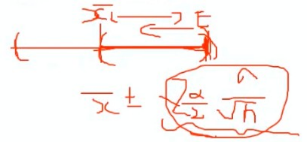 x̄ E
x̄ ± Z α/2 σ/√n